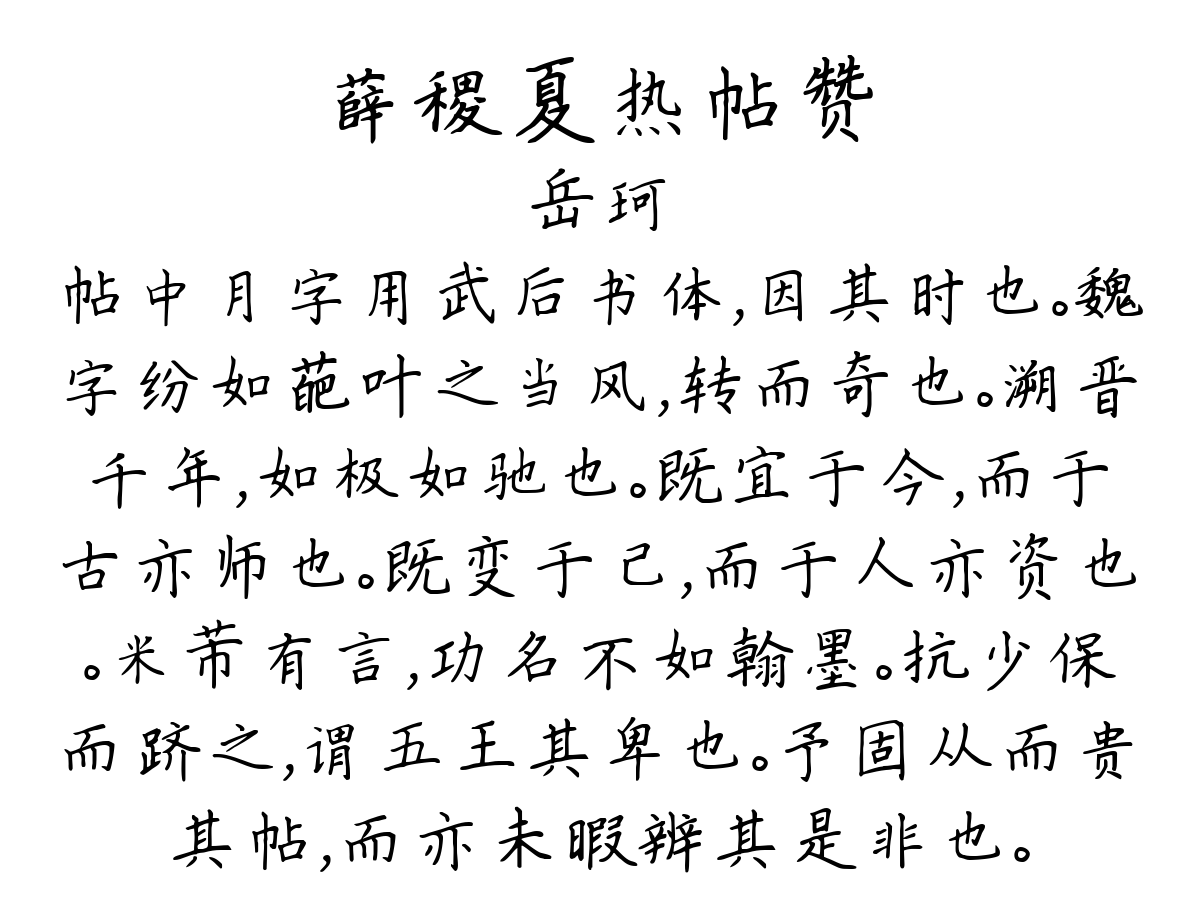 薛稷夏热帖赞
岳珂
帖中月字用武后书体,因其时也。魏
字纷如葩叶之当风,转而奇也。溯晋
千年,如极如驰也。既宜于今,而于
古亦师也。既变于己,而于人亦资也
。米芾有言,功名不如翰墨。抗少保
而跻之,谓五王其卑也。予固从而贵
其帖,而亦未暇辨其是非也。